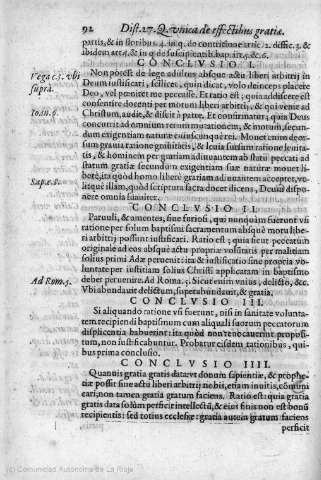 92 Dist. 27. Q. vnica de effectibus gratiæ.
partis, & in floribus 4. in q. de contritione artic. 2. dissic. 3. &
abidem art. 4. & in q. de suscipientib. bap. art. 5. & 6.
CONCLVSIO I.
Vega c. 3. vbi supra.
Non potest de lege adultus absque actu liberi arbitrij in
Deum iustificari, scilicet, quin dicat, volo deinceps placere
Deo, vel peniter me peccasse. Et ratio est; quia adduci est
consentire docenti per motum liberi arbitrij, & qui venit ad
Ioan. 6.
Christum, audit, & discit à patre. Et confirmatur; quia Deus
concurrit ad omnem rerum motionem, & motum, secun-
dum exigentiam naturæ cuiuscunque rei. Mouet enim deor-
sum grauia ratione grauitatis, & leuia sursum ratione leuita-
tis, & hominem per gratiam adiuuantem ab statu peccati ad
statum gratiæ secundum exigentiam suæ naturæ mouet li-
berè, ita quod homo liberè gratiam adiuuantem acceptet, ve-
Sap. c. 8.
litque illam, quod scriptura sacra docet dicens, Deum dispo-
nere omnia suauiter.
CONCLVSIO II.
Paruuli, & amentes, siue furiosi, qui nunquam fuerunt vsi
ratione per solum baptismi sacramentum absque motu libe-
ri arbitrij possunt iustificari. Ratio est; quia sicut peccatum
originale ad eos absque actu propriæ voluntatis per malitiam
solius primi Adæ peruenit: ita & iustificatio sine propria vo-
luntate per iustitiam solius Christi applicatam in baptismo
Ad Rom. 5.
debet peruenire. Ad Roma. 5. Sicut enim vnius, delicto, &c.
Vbi abundauit delictum, superabundauit, & gratia.
CONCLVSIO III.
Si aliquando ratione vsi fuerunt, nisi in statu voluntа-
tem recipiendi baptismum cum aliquali suorum peccatorum
displicentia habuerint: ita quod non tenè cauerint proposi-
tum, non iustificabuntur. Probatur eisdem rationibus, qui-
bus prima conclusio.
CONCLVSIO IIII.
Quamuis gratia gratis data vt donum sapientiæ, & prophe-
tiæ possit sine actu liberi arbitrij nobis, etiam inuitis, commu-
nicari, non tamen gratia gratum faciens. Ratio est: quia gratia
gratis data solùm perficit intellectũ, & eius finis non est bonũ
recipientis: sed totius ecclesiæ: gratia autem gratum faciens
perficit
(c) Comunidad Autónoma de La Rioja